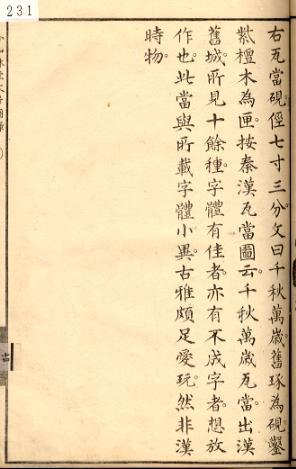 231
右瓦當硯。徑七寸三分。文曰千秋萬歲。舊琢為硯。鑿
紫檀木為匣。按秦漢瓦當圖云。千秋萬歲瓦當。出漢
舊城。所見十餘種。字體有佳者。亦有不成字者。想放
作也。此當與所載字體小異。古雅頗足愛玩。然非漢
時物。